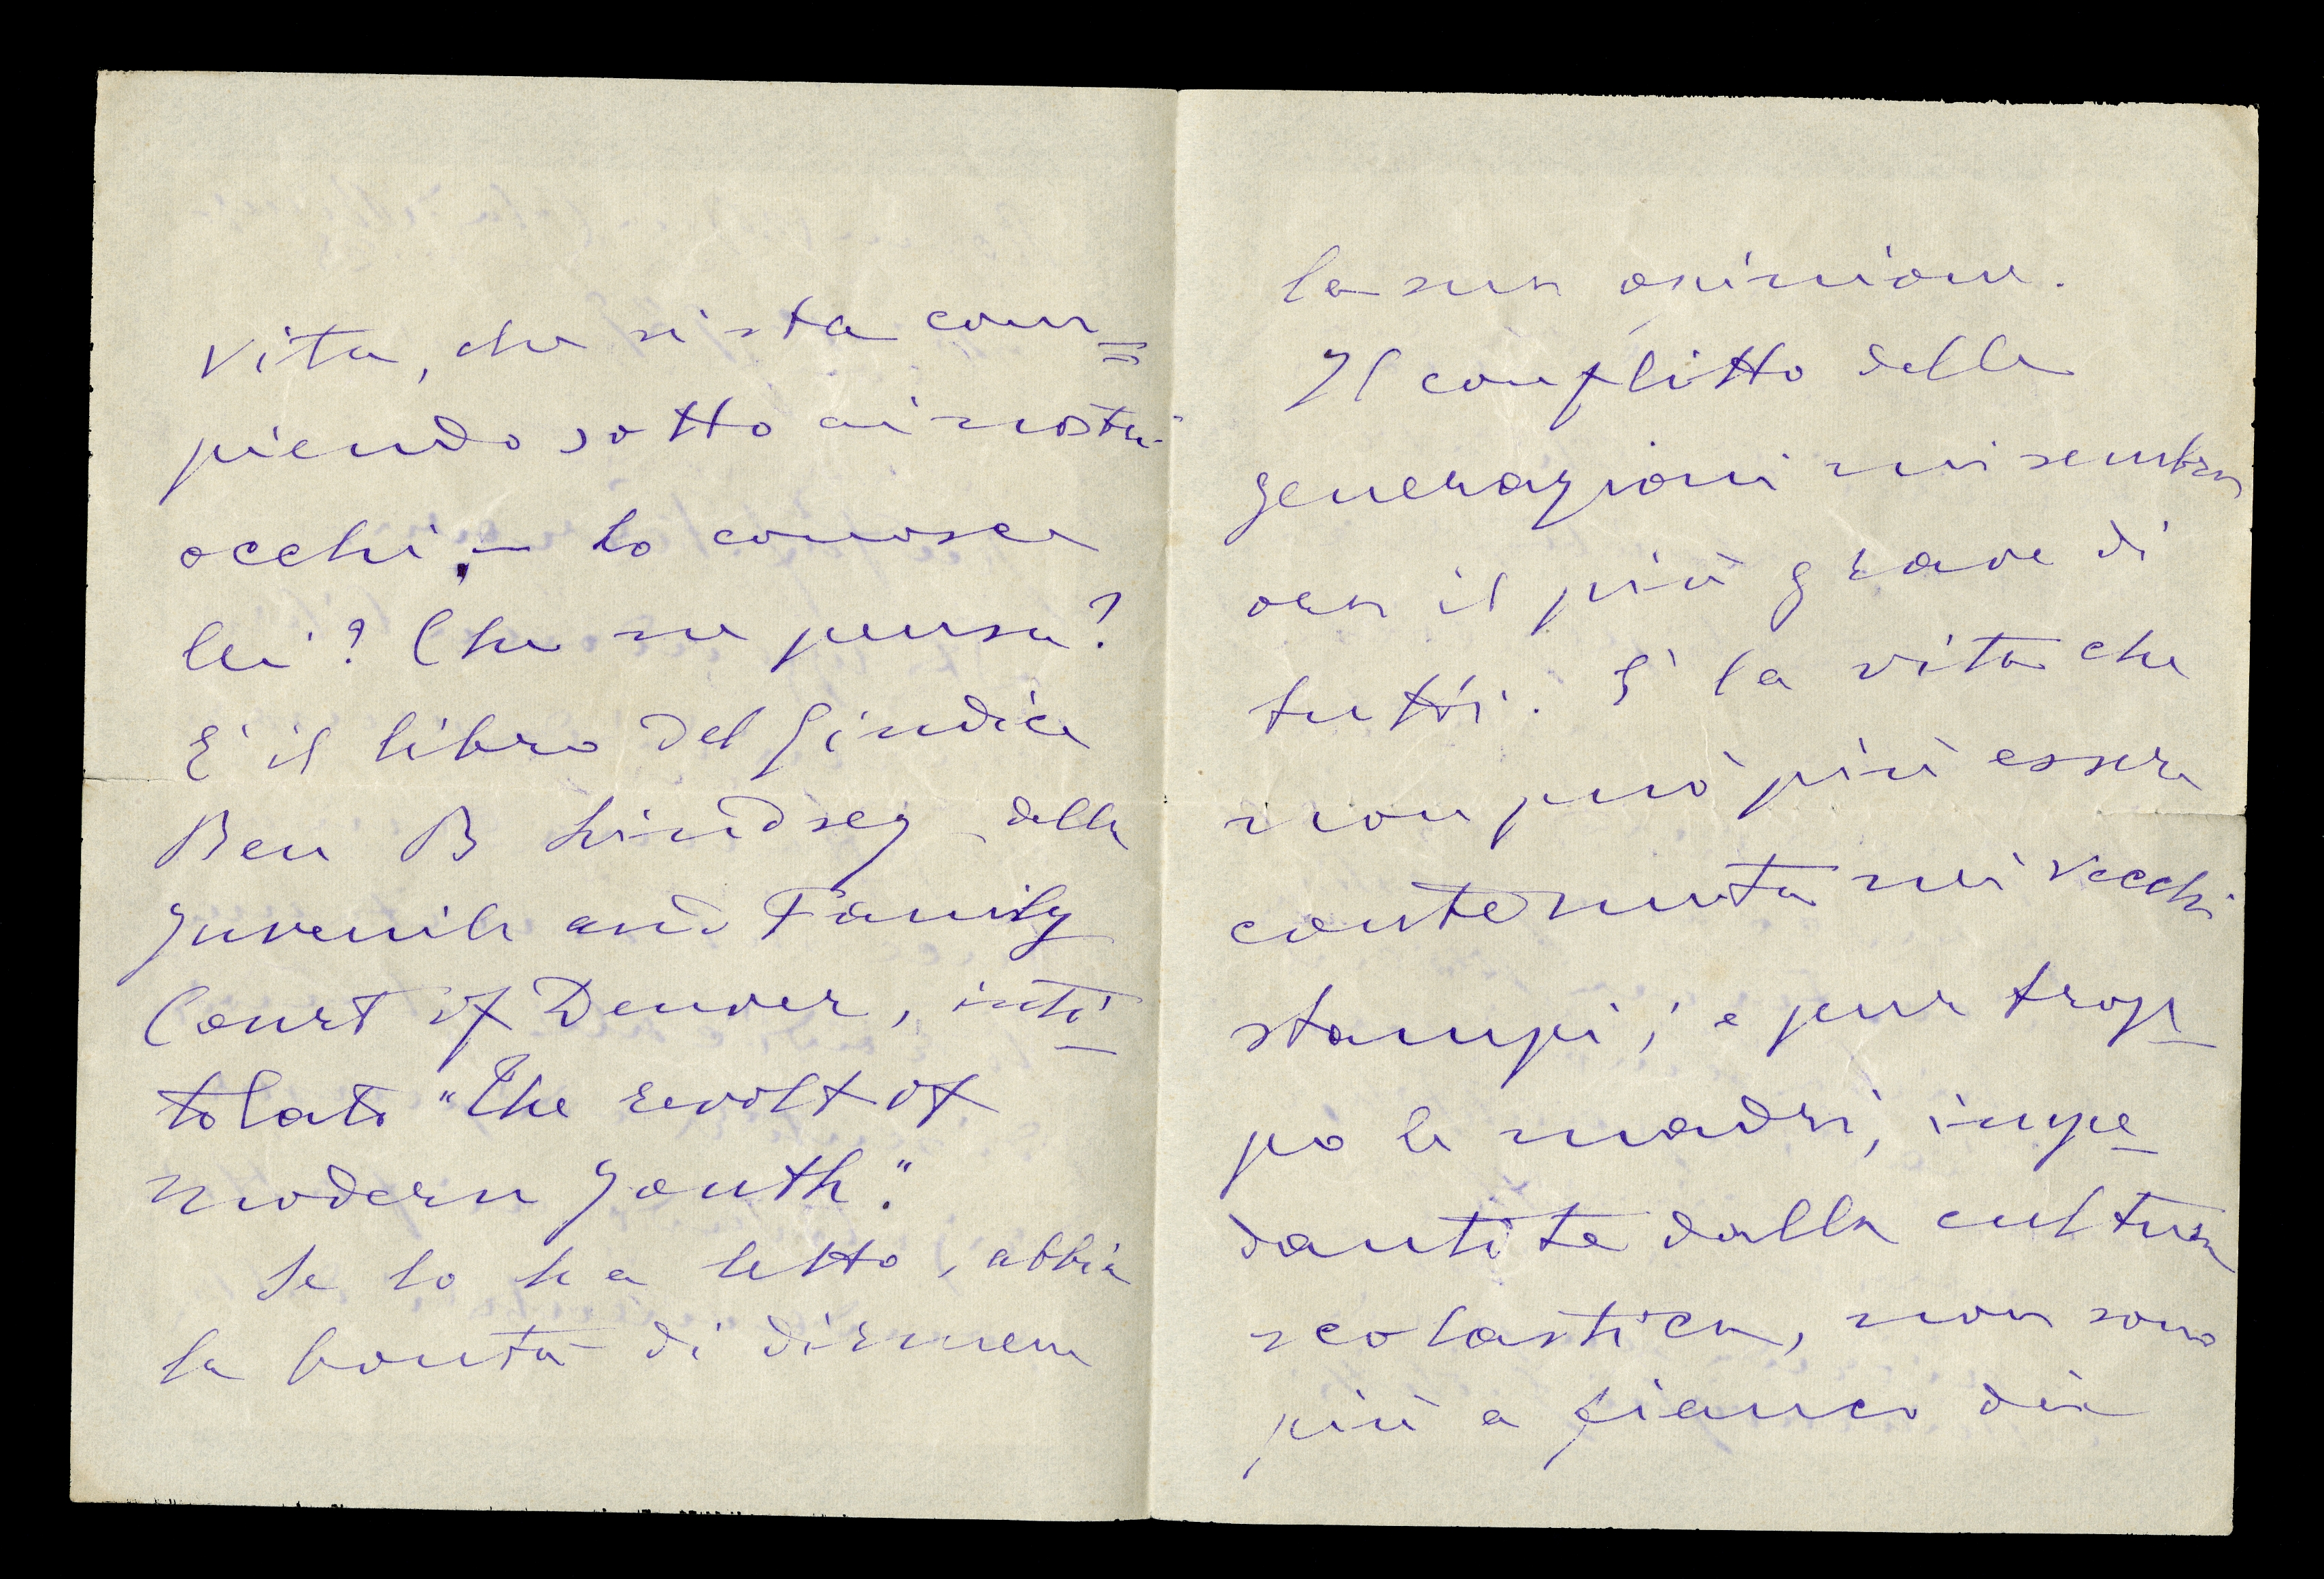 vita, che si sta com=
piendo sotto ai nostri
occhi; – lo conosce
lei? Che ne pensa?
E' il libro del Giudice
Ben B Lindsey della
Juvenile and Family
Court of Denver, inti-
tolato "The revolt of
modern Youth".
Se lo ha letto, abbia
la bontà di dirmene
la sua opinione.
Il conflitto delle
generazioni mi sembra
ora il più grave di
tutti. E' la vita che
non può più essere
contenuta nei vecchi
stampi; e pur trop-
po le madri, impe-
dantite dalla cultura
scolastica, non sono
più a fianco dei